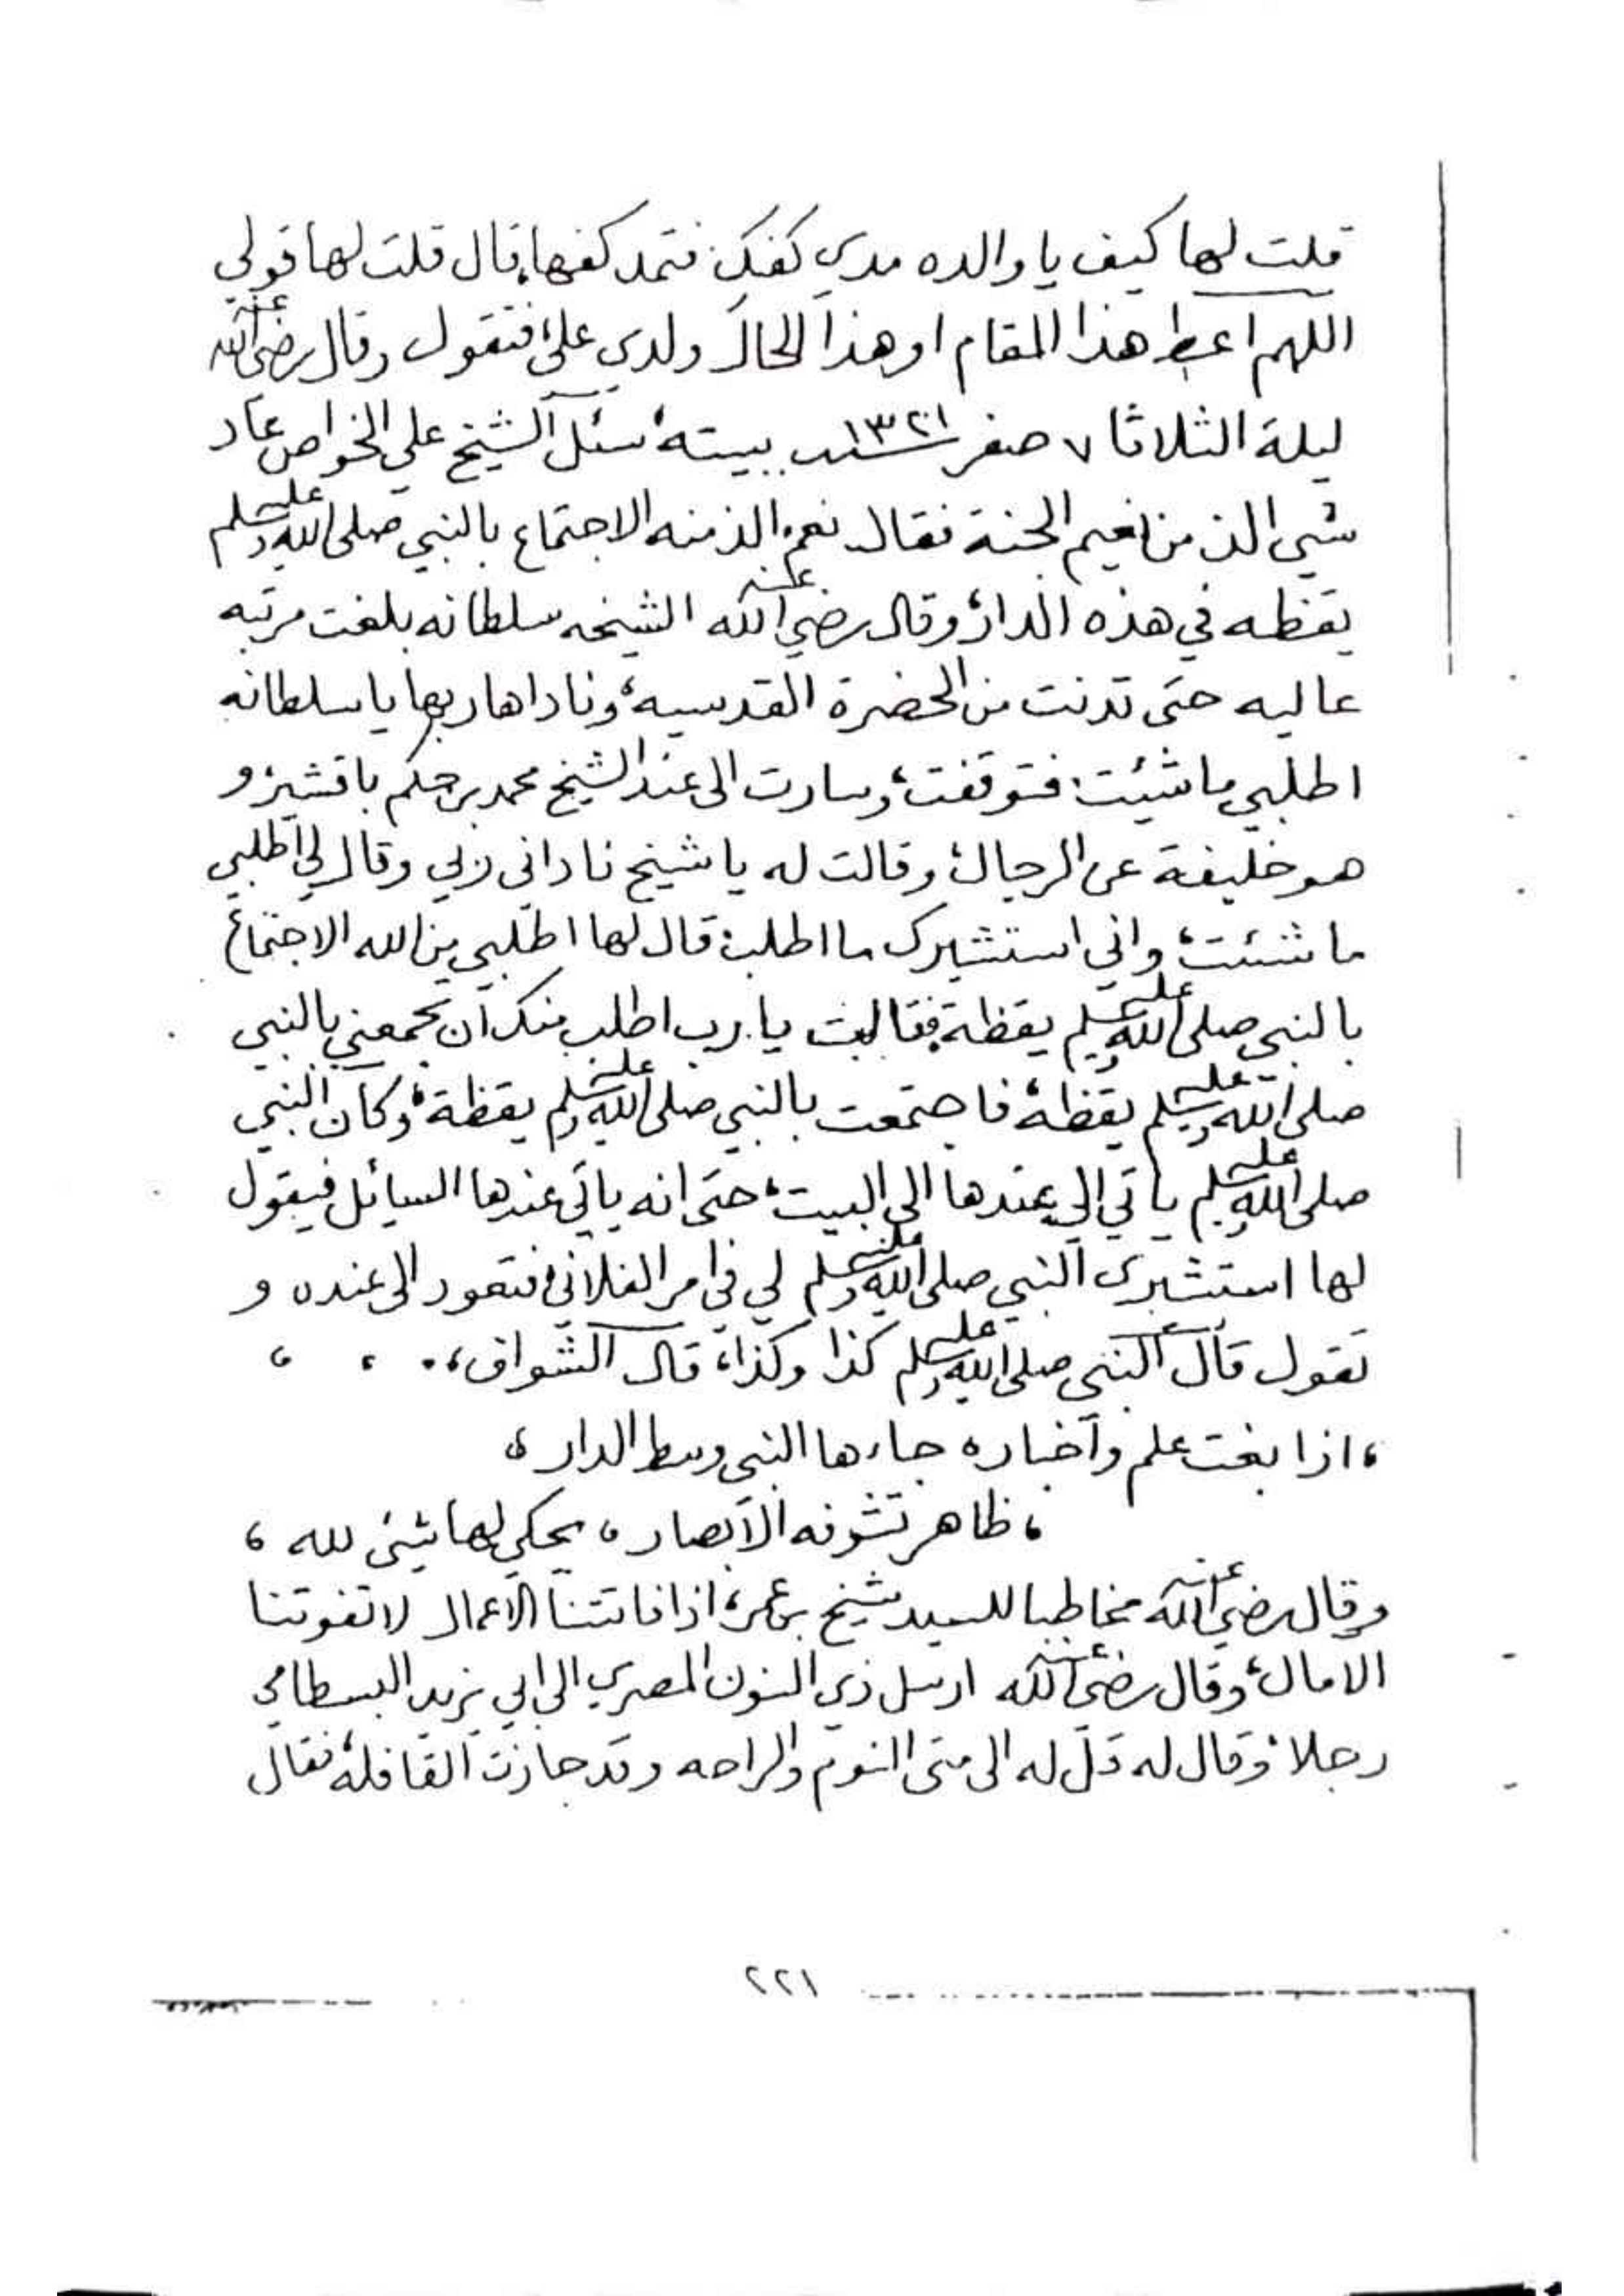 قلت لها كيف يا والده مدي كفك، فتمد كفها، قال قلت لها قولي
اللهم اعط هذا المقام او هذا الحال ولدي علي، فتقول وقال رضي الله عنه
ليلة الثلاثا ٧ صفر سنة ١٣٢١ ببيته، سئل الشيخ علي الخواص عاد
شي الذ من نعيم الجنة فقال نعم، الذ منه الاجتماع بالنبي صلى الله عليه وسلم
يقظه في هذه الدار، وقال رضي الله عنه الشيخه سلطانه بلغت مرتبه
عاليه حتى تدنت من الحضرة القدسيه، وناداها ربها يا سلطانه
اطلبي ما شيئت، فتوقفت، وسارت الى عند الشيخ محمد بن حكم باقشير، و
هو خليفة عن الرجال، وقالت له يا شيخ ناداني ربي وقال لي اطلبي
ما شئت، واني استشيرك ما اطلب، قال لها اطلبي من الله الاجتماع
بالنبي صلى الله عليه وسلم يقظة، فقالت يا رب اطلب منك ان تجمعني بالنبي
صلى الله عليه وسلم يقظة، فاجتمعت بالنبي صلى الله عليه وسلم يقظة، وكان النبي
صلى الله عليه وسلم ياتي الي عندها الى البيت، حتى انه ياتي عندها السائل فيقول
لها استشيري النبي صلى الله عليه وسلم لي في امر الفلاني، فتعود الى عنده و
تقول قال النبي صلى الله عليه وسلم كذا وكذا، قال الشواف،
، اذا بغت علم وأخباره جاءها النبي وسط الدار،
، ظاهر تشوفه الابصار، يحكي لها شئ لله،
وقال رضي الله عنه مخاطبا للسيد شيخ بن عمر، اذا فاتتنا الاعمال لا تفوتنا
الامال، وقال رضي الله عنه ارسل ذي النون المصري الى ابي يزيد البسطامي
رجلا، وقال له قل له الى متى النوم والراحه وقد جازت القافلة، فقال
٢٢١